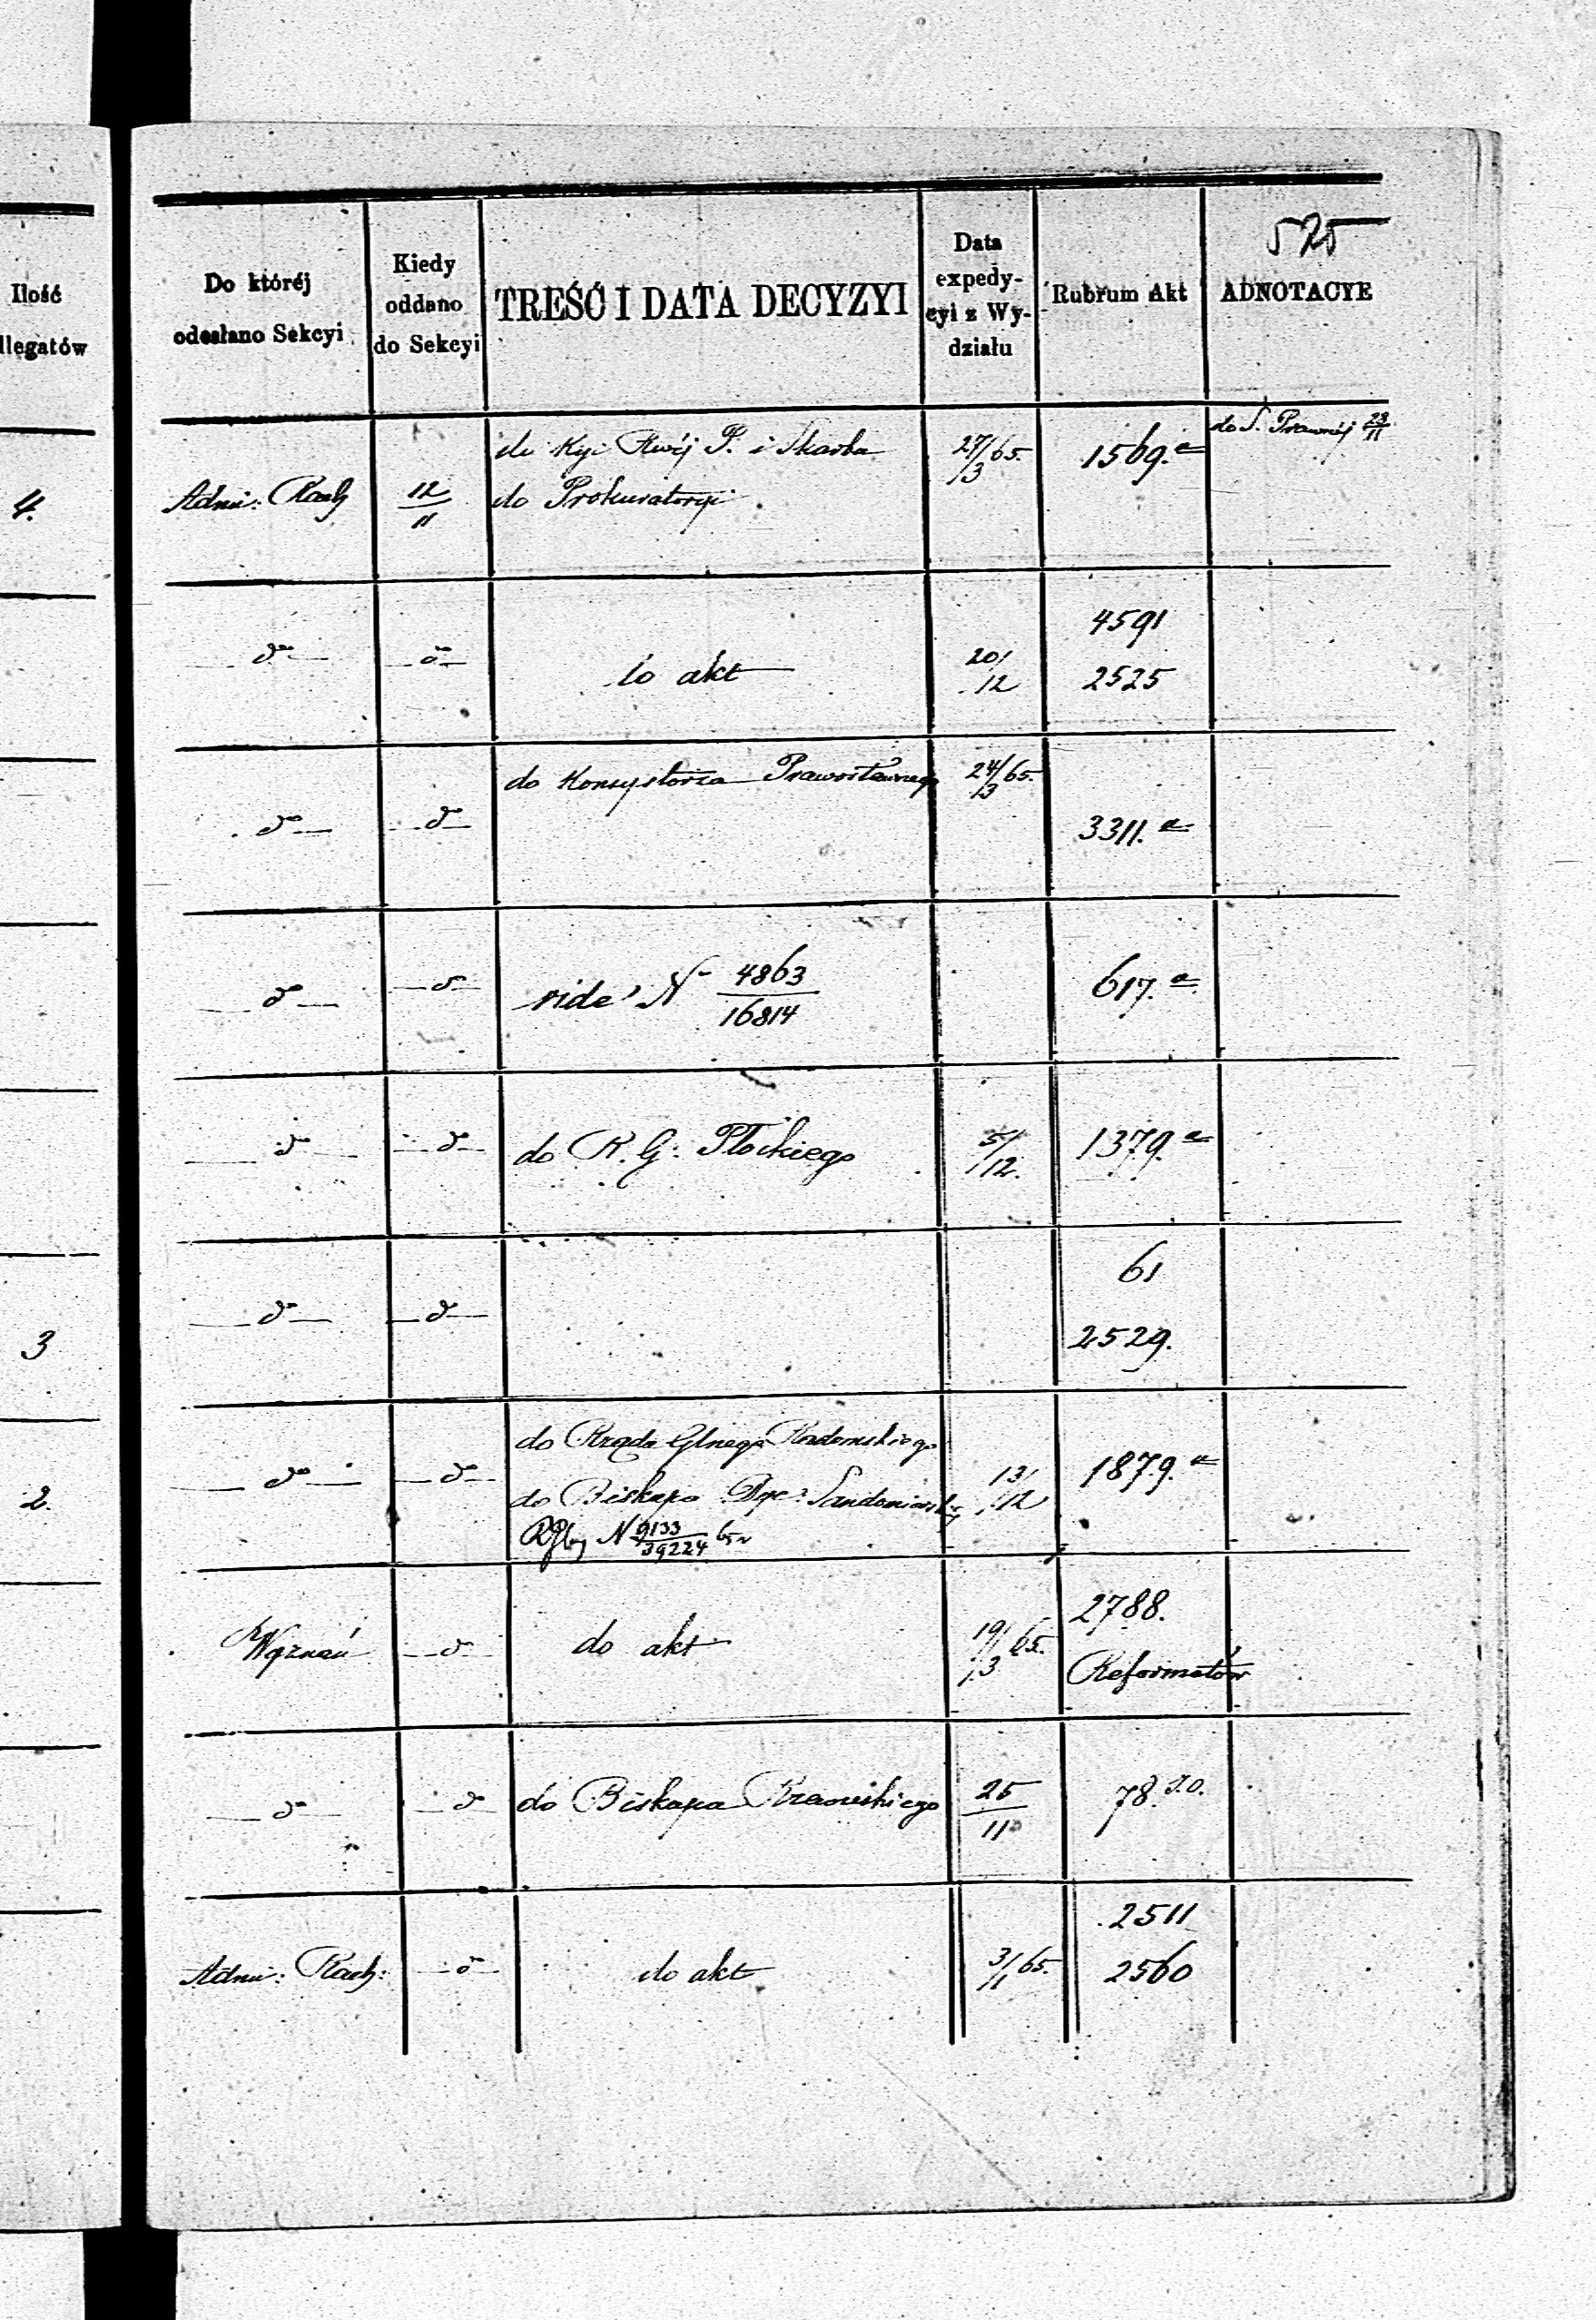 575
Ilość
llegatów
Do któréj
odesłano Sekcyi
Kiedy
oddano
do Sekcyi
TREŚĆ I DATA DECYZYI
Data
expedy-
cyi z Wy-
działu
Rubrum Akt
ADNOTACYE
4.
Adm: Rach
12/11
do Kyi Rwéj P. i Skarbu
do Prokuratoryi
27/3 65.
1569.a
do S. Prawnéj 23/11
do
do
do akt
20/12
4591
2525
do
do
do Konsystorza Prawosławnego
24/3 65.
3311.a
do
do
vide N 4863/16814
617.a
do
do
do R. G: Płockiego
5/12.
1379.a
3
do
do
61
2529.
2.
do
do
do Rządu Glnego Radomskiego
do Biskupa Dye: Sandomiersk
N 9133/39224
13/12
1879.a
Wyznań
do
do akt
19/3 65.
2788.
Reformatów
do
do
do Biskupa
25/11
78.
Adm: Rach:
do
do akt
3/1 65.
2511
2560